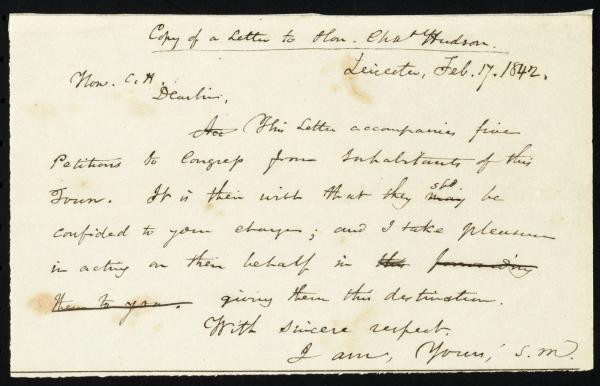 Copy of a Letter to Hon. Chas. Hudson.
Leicester, Feb. 17. 1842.
Hon. C. H.
Dear Sir,
This Letter accompanies five
Petitions to Congress from Inhabitants of this
Town. It is their wish that they may shd be
confided to your charge; and I take pleasure
in acting on their behalf in this forwarding
them to you. giving them this destination.
With sincere respect.
I am, Yours, S. M.